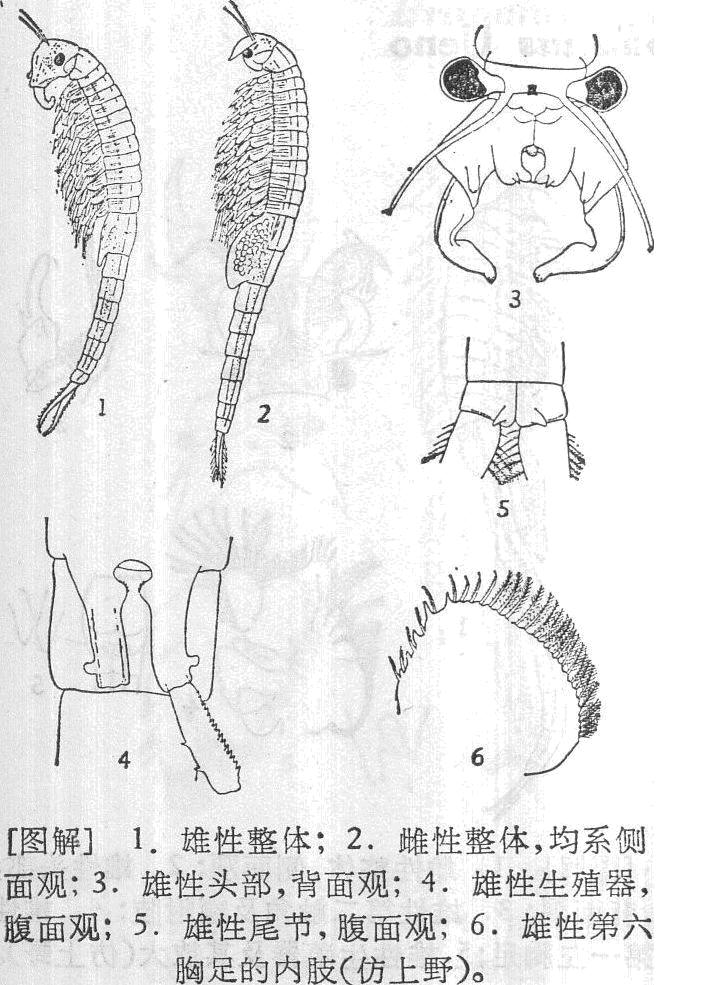 1
2
3
4
5
6
[图解] 1. 雄性整体; 2. 雌性整体,均系侧
面观; 3. 雄性头部,背面观; 4. 雄性生殖器,
腹面观; 5. 雄性尾节,腹面观; 6. 雄性第六
胸足的内肢(仿上野)。